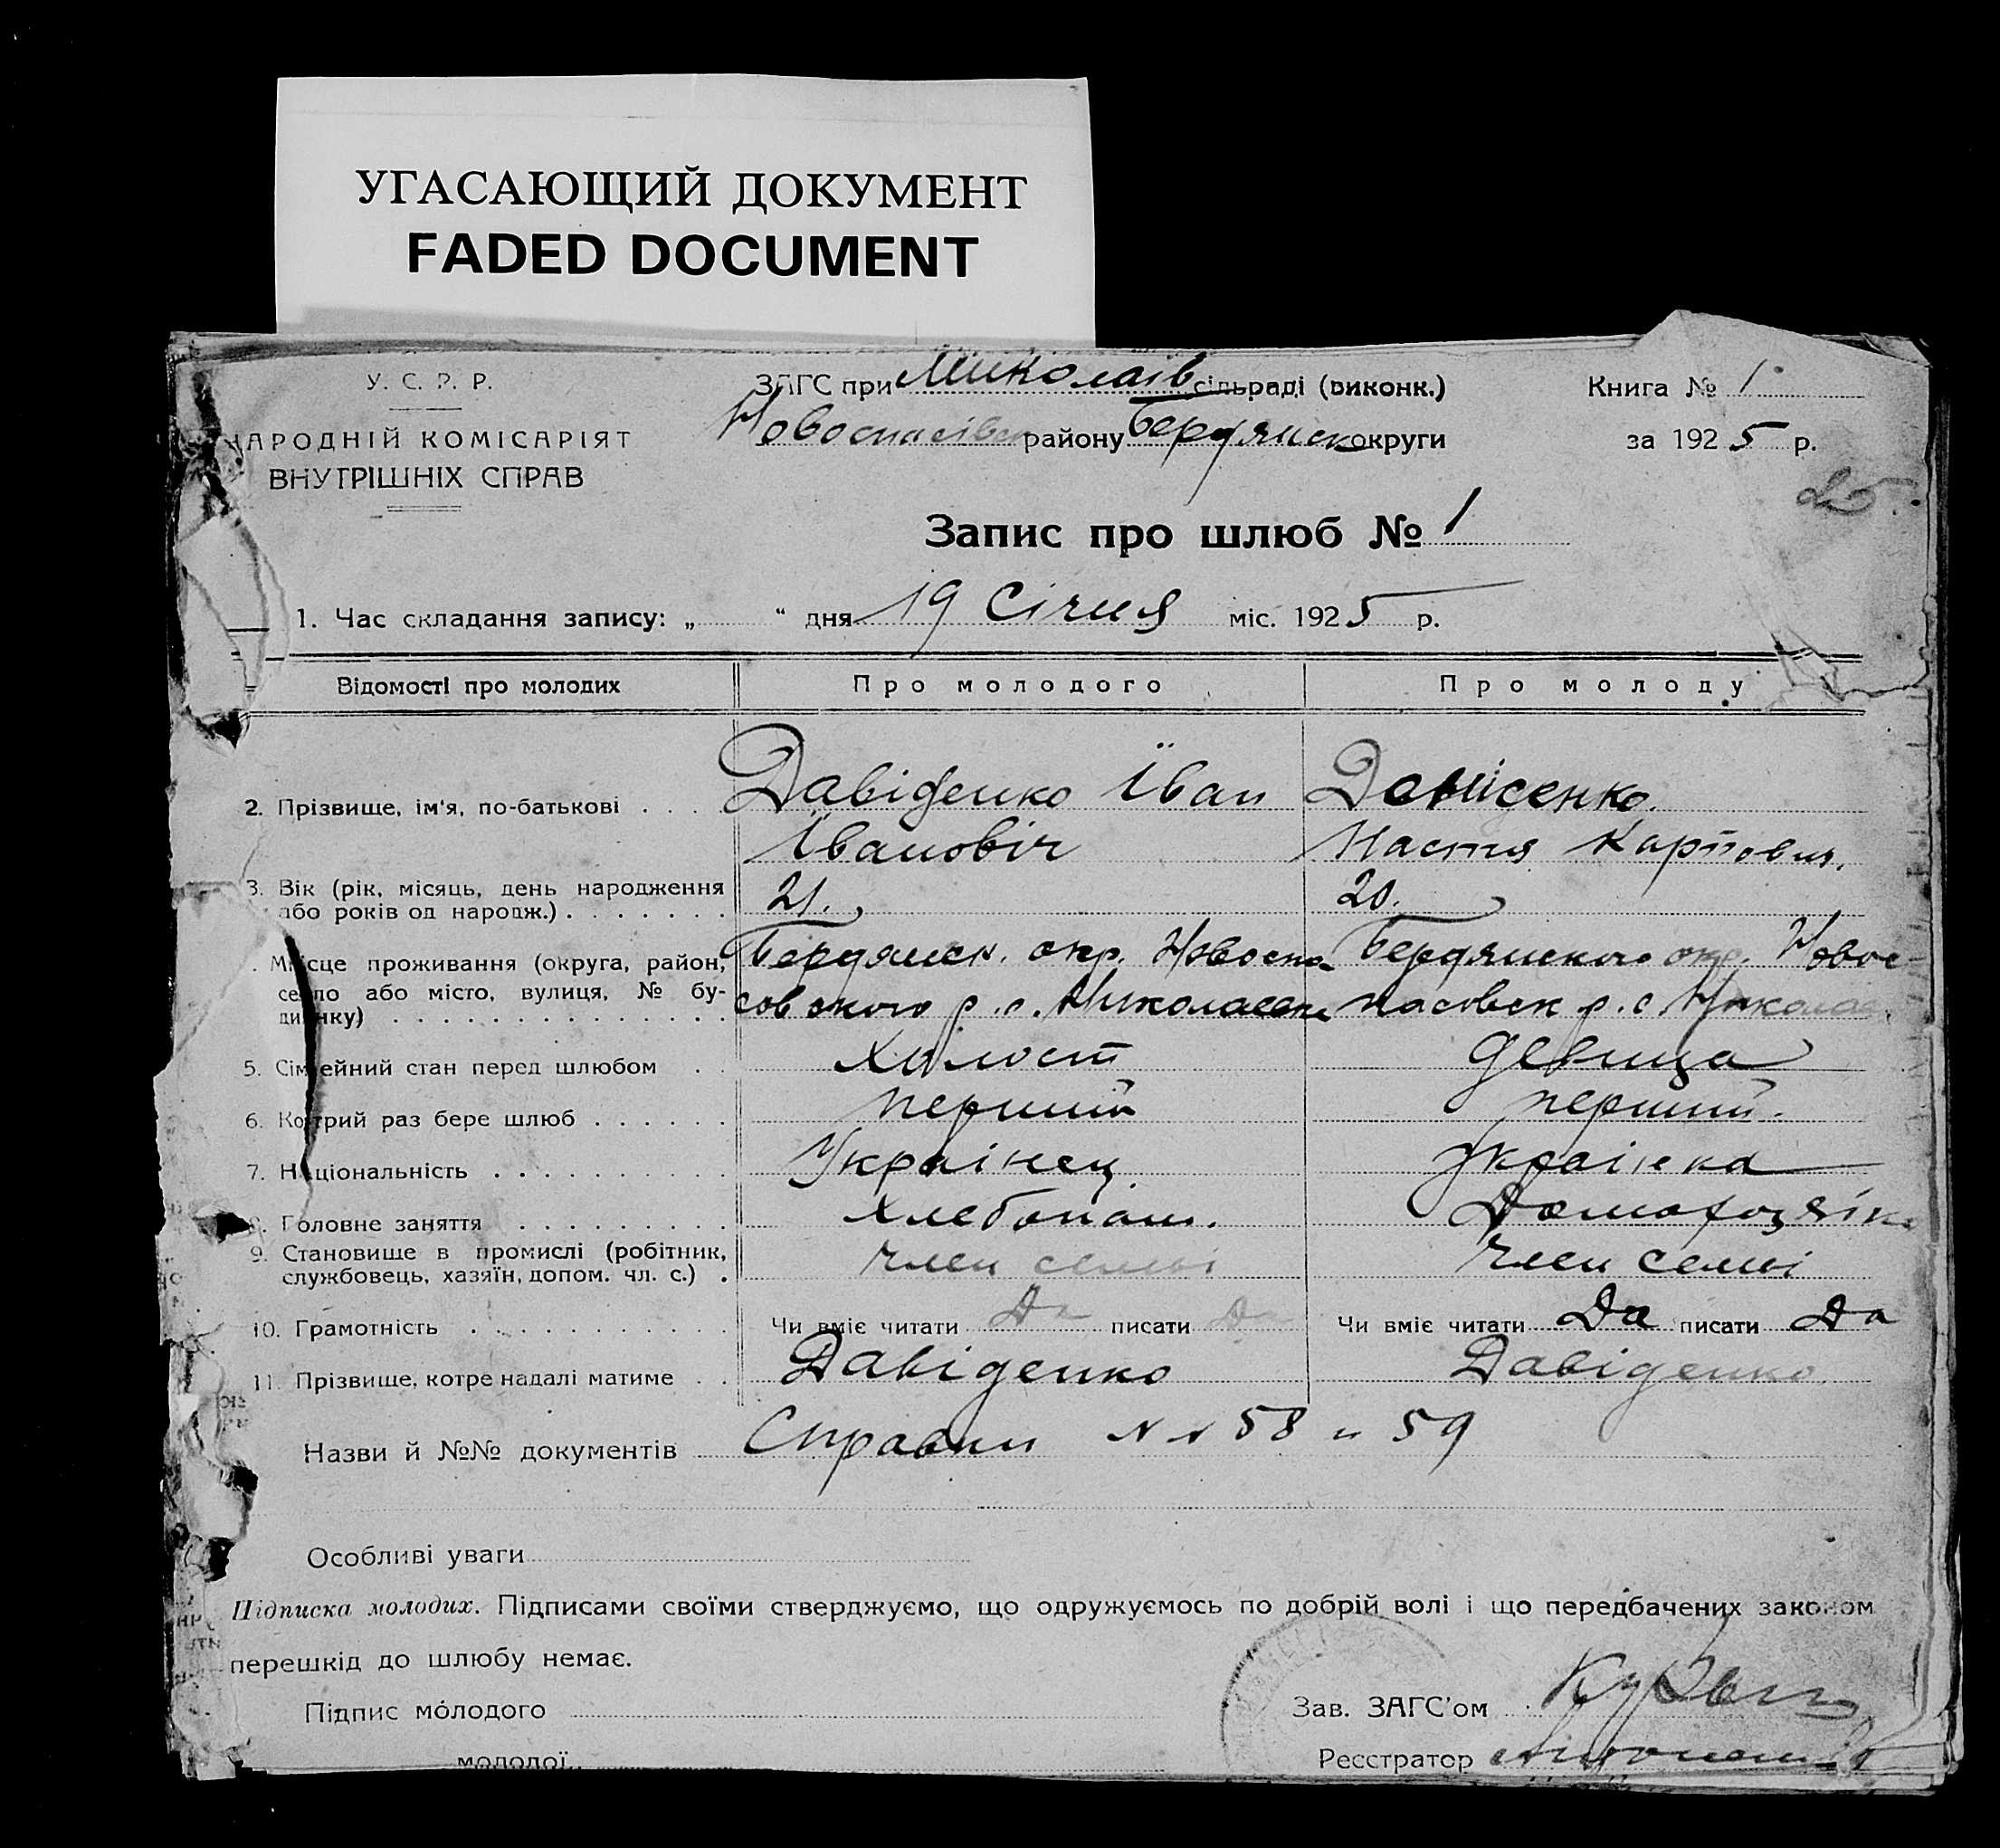 УГАСАЮЩИЙ ДОКУМЕНТ
FADED DOCUMENT
У. С. Р. Р.
НАРОДНІЙ КОМІСАРІЯТ
ВНУТРІШНІХ СПРАВ
ЗАГС при Миколаїв сільраді (виконк.)
Новоспасівськ району Бердянськ округи
Книга № 1
за 1925 р.
25.
Запис про шлюб № 1
1. Час складання запису: „ “ дня 19 Січня міс. 1925 р.
Відомості про молодих Про молодого Про молоду
2. Прізвище, ім'я, по-батькові . . . . Давіденко Їван Денисенко
Ївановіч Настя Карповня.
3. Вік (рік, місяць, день народження 21. 20.
або років од народж.) . . . . . . .
Місце проживання (округа, район, Бердянск. окр. Новоспа- Бердянского окр. Новос-
село або місто, вулиця, № бу- совского р. с. Николаевка пасовск р. с. Николаев
динку) . . . . . . . . . . . . . .
5. Сімейний стан перед шлюбом . . Холост девица
6. Котрий раз бере шлюб . . . . . . перший перший.
7. Національність . . . . . . . . . . Українец Українка
8. Головне заняття . . . . . . . . . Хлебопаш. Домохозяїк
9. Становище в промислі (робітник, член семьї член семьї
службовець, хазяїн, допом. чл. с.) .
10. Грамотність . . . . . . . . . . . Чи вміє читати Да писати Да Чи вміє читати Да писати Да
11. Прізвище, котре надалі матиме . . Давіденко Давіденко
Назви й №№ документів Справки №№ 58 и 59
Особливі уваги
Підписка молодих. Підписами своїми стверджуємо, що одружуємось по добрій волі і що передбачених законом
перешкід до шлюбу немає.
Підпис молодого
Зав. ЗАГС'ом
молодої
Реєстратор